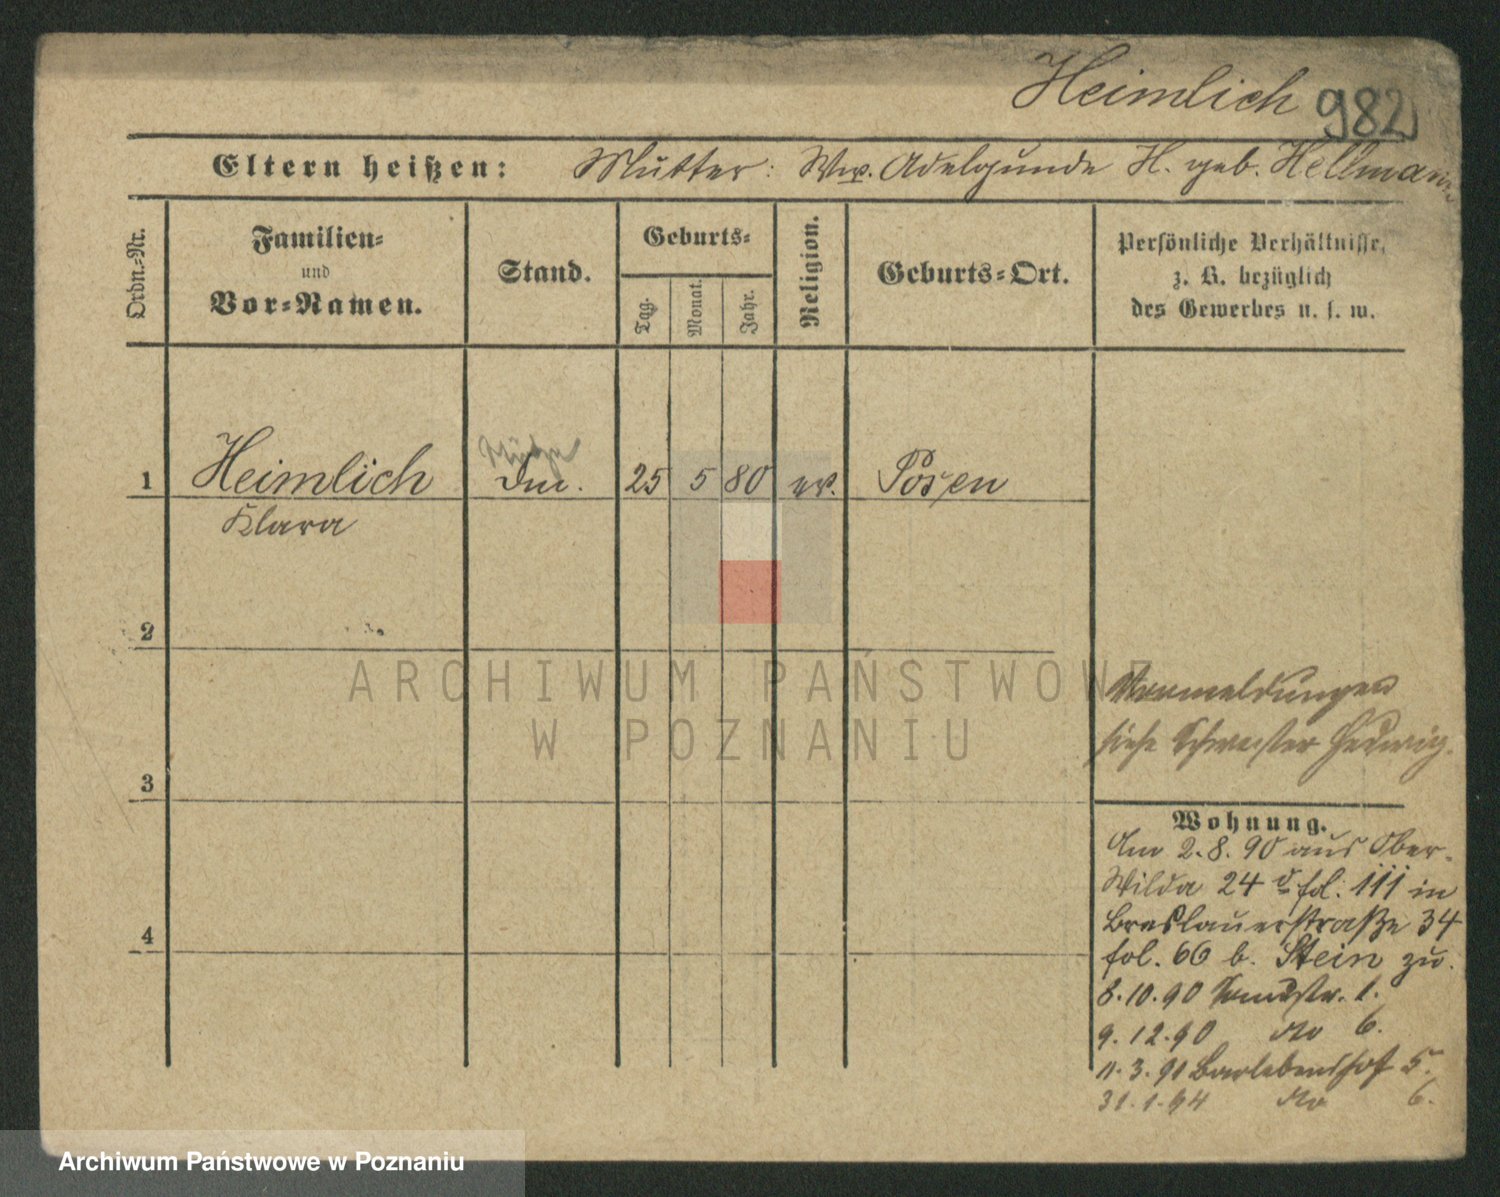 Heimlich 982
Eltern heißen: Mutter: Ww. Adelgunde H. geb. Hellmann
Ordn.-Nr.
Familien- und Vor-Namen.
Stand.
Geburts-
Tag.
Monat.
Jahr.
Religion.
Geburts-Ort.
Persönliche Verhältnisse,
z. B. bezüglich
des Gewerbes u. s. w.
1 Heimlich 25 5 80 ev. Posen
Klara
2
3
4
Vormeldungen
siehe Schwester Hedwig.
Wohnung.
Am 2.8.90 aus Ober-
Wilda 24 fol. 111 in
Breslauerstraße 34
fol. 66 b. Stein zu.
8.10.90 1.
9.12.90 do 6.
11.3.91 Barlebenshof 5.
31.1.94 do 6.
ARCHIWUM PAŃSTWOWE
W POZNANIU
Archiwum Państwowe w Poznaniu